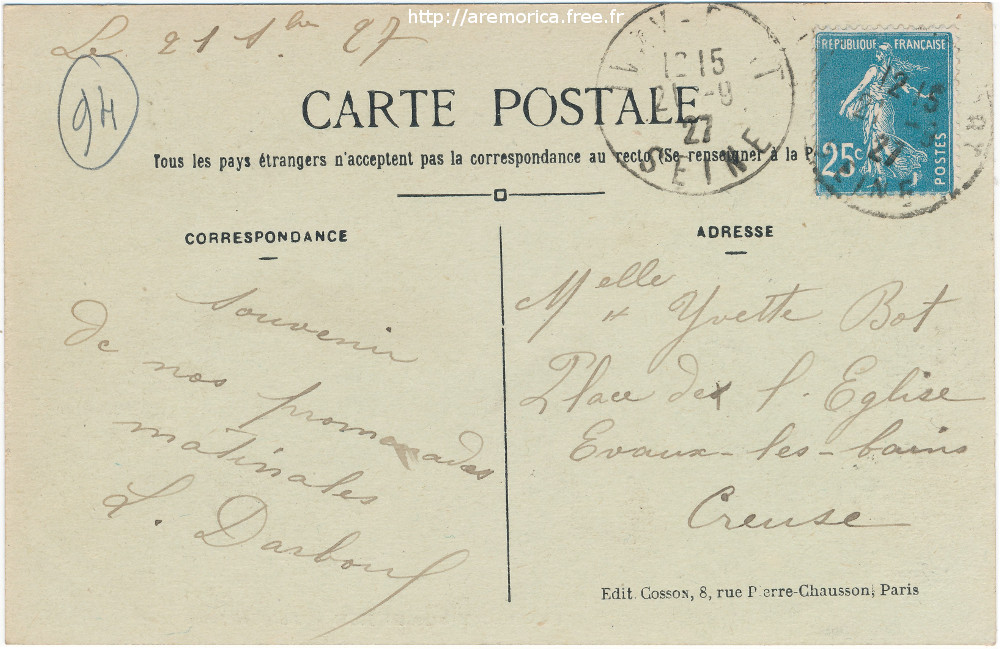 http://aremorica.free.fr
Le 21 1bre 27
94
CARTE POSTALE
Tous les pays étrangers n'acceptent pas la correspondance au recto (Se renseigner à la P
12 15
21 -9
27
SEINE
RÉPUBLIQUE FRANÇAISE
25c
POSTES
12 15
27
SEINE
CORRESPONDANCE
souvenir
de nos promenades
matinales
L. Darbour
ADRESSE
Melle Yvette Bot
Place de l. Eglise
Evaux-les-bains
Creuse
Edit. Cosson, 8, rue Pierre-Chausson, Paris